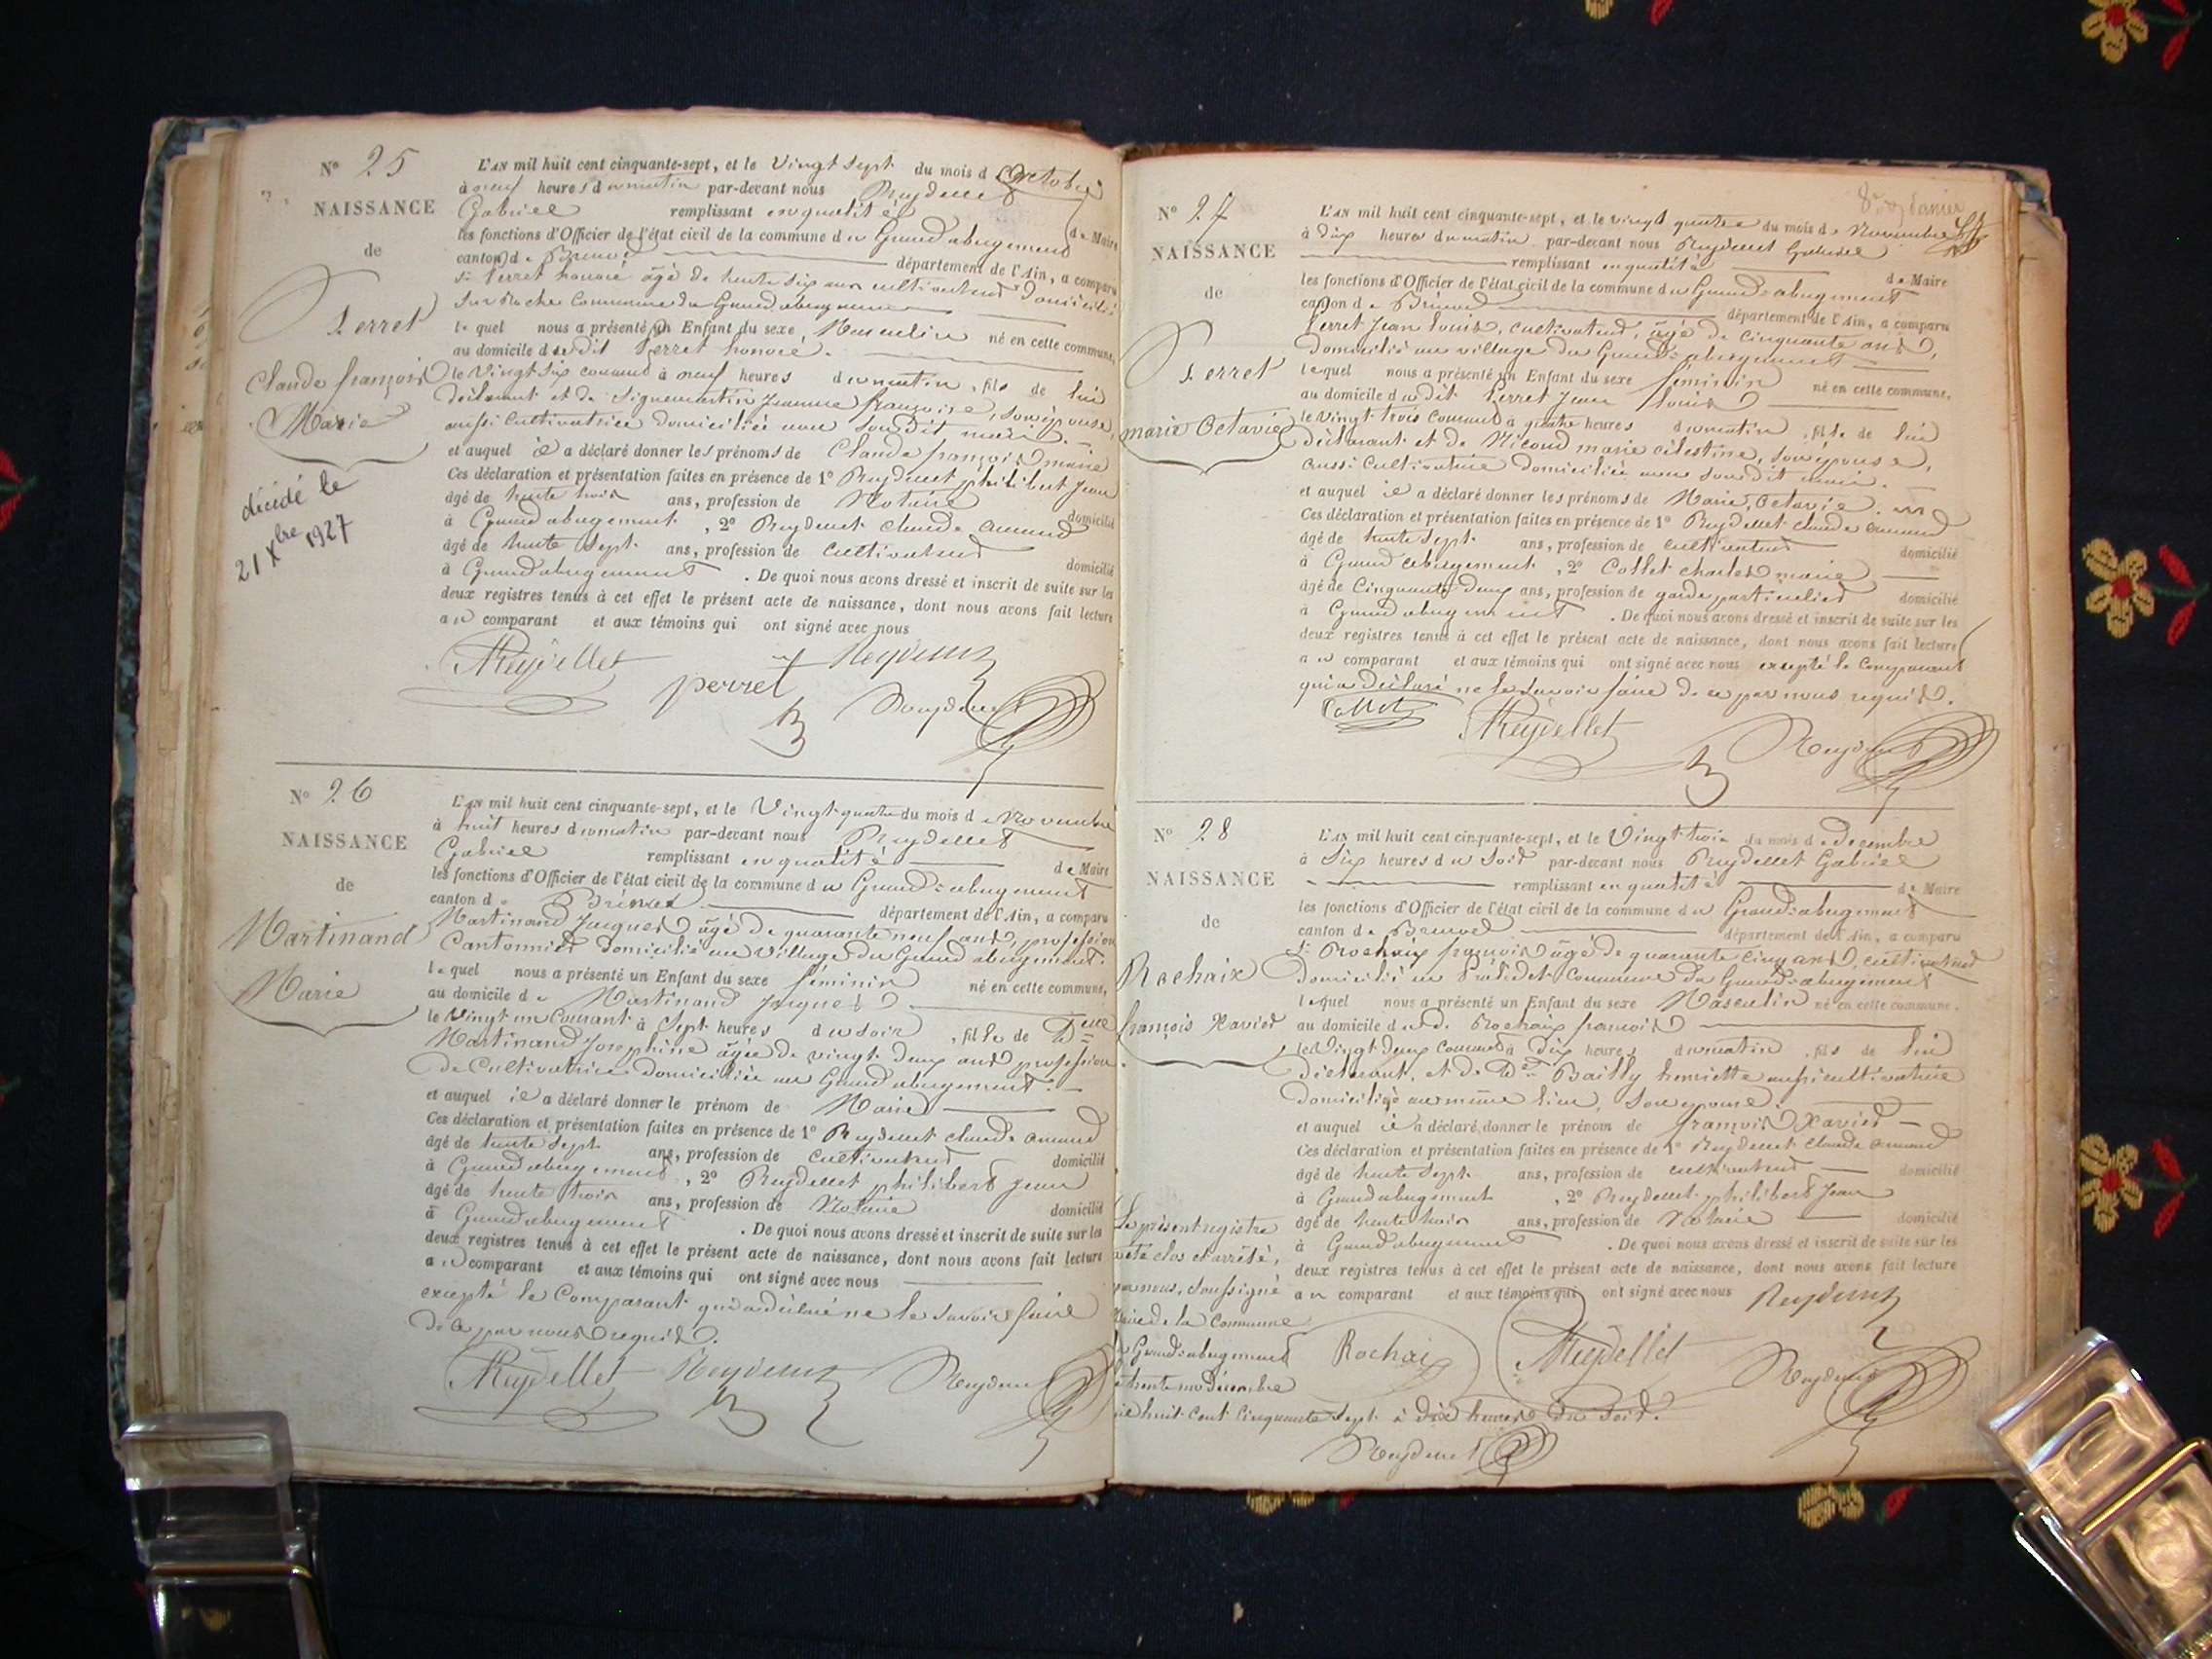 N° 25
NAISSANCE
de
Perret
Claude françois
Marie
décédé le
21 Xbre 1927
L'AN mil huit cent cinquante-sept, et le Vingt Sept du mois d'Octobre
à neuf heures du matin par-devant nous Reydellet
Gabriel remplissant en qualité de Maire
les fonctions d'Officier de l'état civil de la commune du Grand abergement
canton de Brenod département de l'Ain, a comparu
Sr Perret honoré âgé de trente six ans cultivateur domicilié
Sur Roche Commune du Grand abergement
lequel nous a présenté un Enfant du sexe Masculin né en cette commune,
au domicile dudit Perret honoré.
le Vingt Six courant à neuf heures du matin, fils de lui
déclarant et de Siguemartin Jeanne françoise, son épouse,
aussi Cultivatrice domiciliée avec Sondit mari.
et auquel il a déclaré donner les prénoms de Claude françois marie
Ces déclaration et présentation faites en présence de 1° Reydellet philibert Jean
âgé de trente trois ans, profession de Notaire domicilié
à Grand abergement, 2° Reydellet Claude Amand
âgé de trente Sept ans, profession de Cultivateur domicilié
à Grand abergement. De quoi nous avons dressé et inscrit de suite sur les
deux registres tenus à cet effet le présent acte de naissance, dont nous avons fait lecture
au comparant et aux témoins qui ont signé avec nous
AReydellet Reydellet
perret Reydellet
N° 26
NAISSANCE
de
Martinand
Marie
L'AN mil huit cent cinquante-sept, et le Vingt quatre du mois de Novembre
à huit heures du matin par-devant nous Reydellet
Gabriel remplissant en qualité de Maire
les fonctions d'Officier de l'état civil de la commune du Grand-abergement
canton de Brenod département de l'Ain, a comparu
Martinand Jacques âgé de quarante neuf ans, profession
Cantonnier domicilié au Village du Grand abergement.
lequel nous a présenté un Enfant du sexe féminin né en cette commune,
au domicile de Martinand Jacques
le Vingt un Courant à Sept heures du soir, fille de Delle
Martinand Josephine âgée de vingt deux ans profession
de Cultivatrice domiciliée au Grand abergement.
et auquel il a déclaré donner le prénom de Marie
Ces déclaration et présentation faites en présence de 1° Reydellet claude amand
âgé de trente Sept ans, profession de cultivateur domicilié
à Grand abergement, 2° Reydellet philibert Jean
âgé de trente trois ans, profession de Notaire domicilié
à Grand abergement. De quoi nous avons dressé et inscrit de suite sur les
deux registres tenus à cet effet le présent acte de naissance, dont nous avons fait lecture
au comparant et aux témoins qui ont signé avec nous
excepté le Comparant qui a déclaré ne le savoir faire
de ce par nous requis.
AReydellet Reydellet Reydellet
N° 27
NAISSANCE
de
Perret
marie Octavie
L'AN mil huit cent cinquante-sept, et le vingt quatre du mois de Novembre
à dix heures du matin par-devant nous Reydellet Gabriel
remplissant en qualité de Maire
les fonctions d'Officier de l'état civil de la commune du Grand-abergement
canton de Brenod département de l'Ain, a comparu
Perret Jean Louis, cultivateur, âgé de cinquante ans,
domicilié au village du Grand-abergement
lequel nous a présenté un Enfant du sexe féminin né en cette commune,
au domicile dudit Perret Jean Louis
le Vingt trois Courant à quatre heures du matin, fille de lui
déclarant et de Nicoud marie célestine, son épouse,
aussi Cultivatrice domiciliée avec sondit mari.
et auquel il a déclaré donner les prénoms de Marie, Octavie.
Ces déclaration et présentation faites en présence de 1° Reydellet claude amand
âgé de trente Sept ans, profession de cultivateur domicilié
à Grand abergement, 2° Collet charles marie
âgé de Cinquante deux ans, profession de garde particulier domicilié
à Grand abergement. De quoi nous avons dressé et inscrit de suite sur les
deux registres tenus à cet effet le présent acte de naissance, dont nous avons fait lecture
au comparant et aux témoins qui ont signé avec nous excepté le Comparant
qui a déclaré ne le savoir faire de ce par nous requis.
Collet AReydellet Reydellet
N° 28
NAISSANCE
de
Rochaix
françois Xavier
L'AN mil huit cent cinquante-sept, et le Vingt trois du mois de decembre
à Six heures du Soir par-devant nous Reydellet Gabriel
remplissant en qualité de Maire
les fonctions d'Officier de l'état civil de la commune du Grand-abergement
canton de Brenod département de l'Ain, a comparu
Sr Rochaix françois âgé de quarante cinq ans, cultivateur
domicilié au Commune du Grand-abergement
lequel nous a présenté un Enfant du sexe Masculin né en cette commune,
au domicile dud. Rochaix françois
le Vingt deux Courant à dix heures du matin, fils de lui
déclarant, et de Bailly henriette aussi cultivatrice
domiciliée au même lieu, son épouse.
et auquel il a déclaré donner le prénom de françois Xavier
Ces déclaration et présentation faites en présence de 1° Reydellet Claude amand
âgé de trente Sept ans, profession de cultivateur domicilié
à Grand abergement, 2° Reydellet philibert Jean
âgé de trente trois ans, profession de Notaire domicilié
à Grand abergement. De quoi nous avons dressé et inscrit de suite sur les
deux registres tenus à cet effet le présent acte de naissance, dont nous avons fait lecture
au comparant et aux témoins qui ont signé avec nous Reydellet
Rochaix AReydellet Reydellet
Le présent registre
a été clos et arrêté,
par nous, soussigné
Maire de la Commune
du Grand-abergement
le trente un décembre
mil huit cent cinquante Sept à dix heures du Soir.
Reydellet